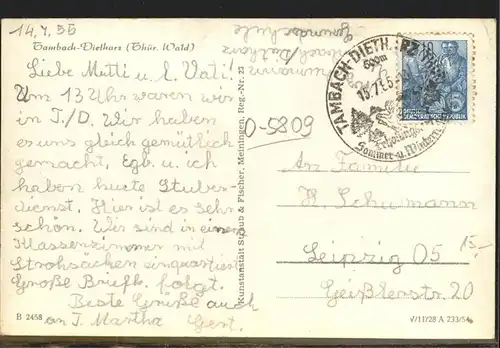 14.7.55
Tambach-Dietharz (Thür. Wald)
Liebe Mutti u. l. Vati!
Um 13 Uhr waren wir
in T./D. Wir haben
es uns gleich gemütlich
gemacht. Egb. u. ich
haben heute Stuben-
dienst. Hier ist es sehr
schön. Wir sind in einem
Klassenzimmer mit
Strohsäcken einquartiert
Große Briefk. folgt.
Beste Grüße auch
an T. Martha Gert.
B 2458
Kunstanstalt Straub & Fischer, Meiningen, Reg.-Nr. 23
Grundschule
O-5809
TAMBACH-DIETHARZ
Sommer- u. Wintern
DEUTSCHE
DEMOKRATISCHE REPUBLIK
5
An Familie
H. Schumann
Leipzig O5
15,-
Geißlerstr. 20
V/11/28 A 233/54